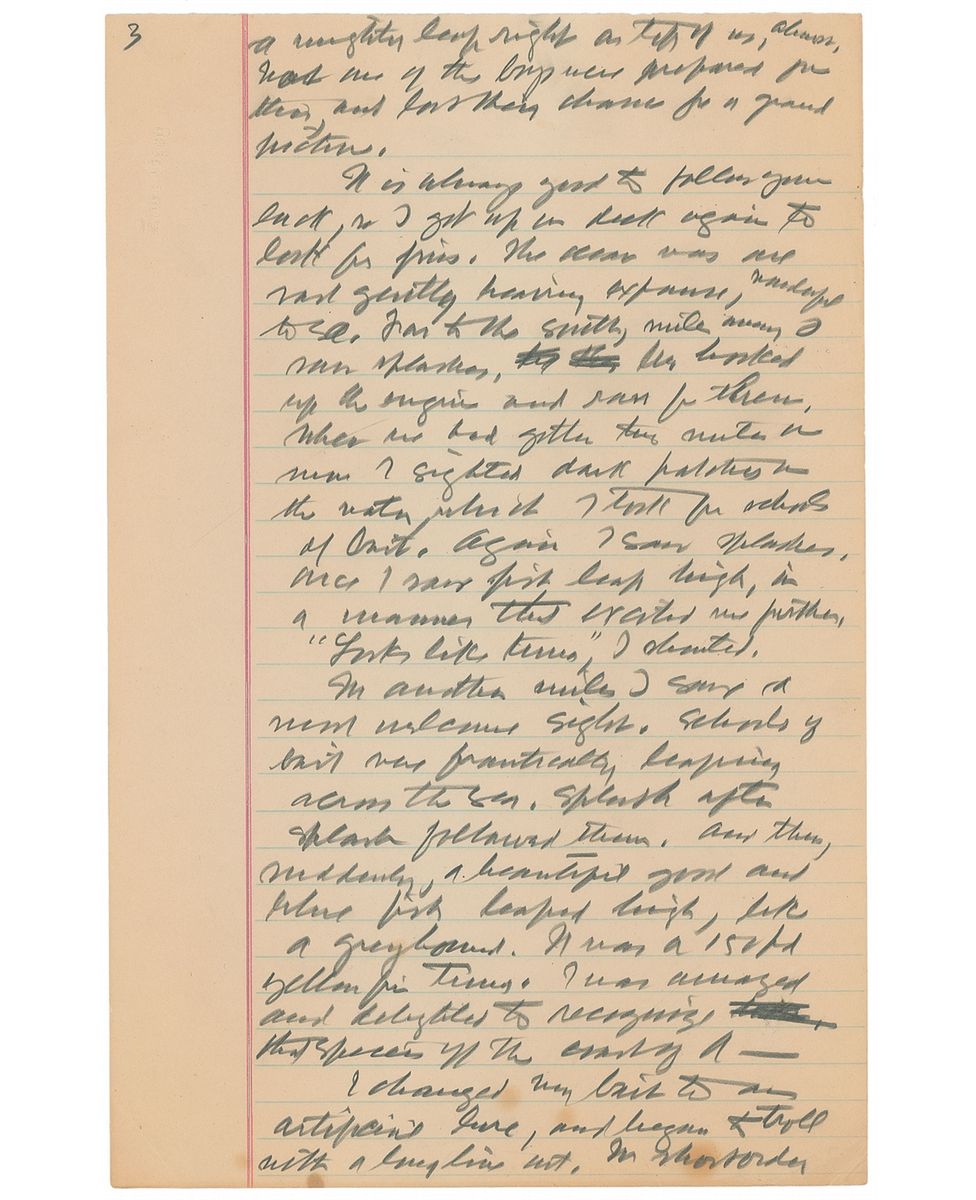 3
a mighty leap right on top of us, almost.
Not one of the boys were prepared for
this, and lost their chance for a grand
picture.
It is always good to follow your
luck, so I got up on deck again to
look for fins. The ocean was one
vast gently heaving expanse, wonderful
to see. Far to the south, miles away I
saw splashes, We hooked
up the engine and ran for them.
When we had gotten two miles or
more I sighted dark patches on
the water, which I took for schools
of bait. Again I saw splashes.
Once I saw fish leap high, in
a manner that excited me further.
"Looks like tuna", I shouted.
In another mile I saw a
most welcome sight. Schools of
bait were frantically leaping
across the sea. Splash after
splash followed them. And then,
suddenly, a beautiful gold and
blue fish leaped high, like
a greyhound. It was a 150 lb
yellow fin tuna. I was amazed
and delighted to recognize
this species off the coast of A —
I changed my bait to an
artificial lure, and began to troll
with a long line out. In short order